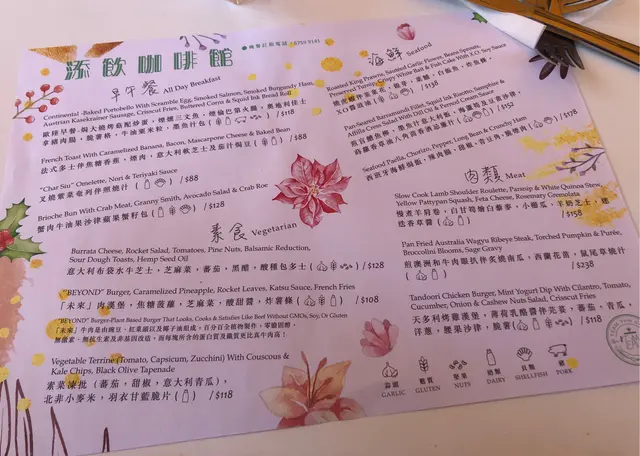 添飲咖啡館
早午餐 All Day Breakfast
Continental -Baked Portobello With Scramble Egg, Smoked Salmon, Smoked Burgundy Ham,
Austrian Kasekrainer Sausage, Crisscut Fries, Buttered Corns & Squid Ink Bread Roll
/ $118
French Toast With Caramelized Banana, Bacon, Mascarpone Cheese & Baked Bean
法式多士伴焦糖香蕉，煙肉，意大利軟芝士及茄汁焗豆 / $88
"Char Siu" Omelette, Nori & Teriyaki Sauce
叉燒紫菜奄列伴照燒汁 / $88
Brioche Bun With Crab Meat, Granny Smith, Avocado Salad & Crab Roe
蟹肉牛油果沙律蘋果蟹籽包 / $128
素食 Vegetarian
Burrata Cheese, Rocket Salad, Tomatoes, Pine Nuts, Balsamic Reduction,
Sour Dough Toasts, Hemp Seed Oil
意大利布袋水牛芝士，芝麻菜，蕃茄，黑醋，酸種包多士 / $128
"BEYOND" Burger, Caramelized Pineapple, Rocket Leaves, Katsu Sauce, French Fries
「未來」肉漢堡，焦糖菠蘿，芝麻菜，醋甜醬，炸薯條 / $108
"BEYOND" Burger-Plant Based Burger That Looks, Cooks & Satisfies Like Beef Without GMOs, Soy, Or Gluten
Vegetable Terrine (Tomato, Capsicum, Zucchini) With Couscous &
Kale Chips, Black Olive Tapenade
素菜凍批（蕃茄，甜椒，意大利青瓜），
北非小麥米，羽衣甘藍脆片 / $118
海鮮 Seafood
Roasted King Prawns, Sauteed Garlic Flower, Beans Sprouts,
Preserved Turnip, Crispy White Bait & Fish Cake With X.O. Soy Sauce
/ $138
Pan Seared Barramundi Fillet, Squid Ink Risotto, Samphire &
Jidilla Cress Salad With Dill Oil & Pernod Cream Sauce
/ $152
Seafood Paella, Chorizo, Pepper, Long Bean & Crunchy Ham
/ $138
肉類 Meat
Slow Cook Lamb Shoulder Roulette, Parsnip & White Quinoa Stew,
Yellow Pattypan Squash, Feta Cheese, Rosemary Gremolata
/ $158
Pan Fried Australia Wagyu Ribeye Steak, Torched Pumpkin & Purée,
Broccolini Blooms, Sage Gravy
煎澳洲和牛肉眼扒伴炙燒南瓜，西蘭花苗，鼠尾草燒汁
$238
Tandoori Chicken Burger, Mint Yogurt Dip With Cilantro, Tomato,
Cucumber, Onion & Cashew Nuts Salad, Crisscut Fries
天多利烤雞漢堡，薄荷乳酪醬伴芫荽，蕃茄，青瓜，
洋蔥，腰果沙律，脆薯 / $118
蒜頭 麩質 堅果 奶類 貝類 豬肉
GARLIC GLUTEN NUTS DAIRY SHELLFISH PORK